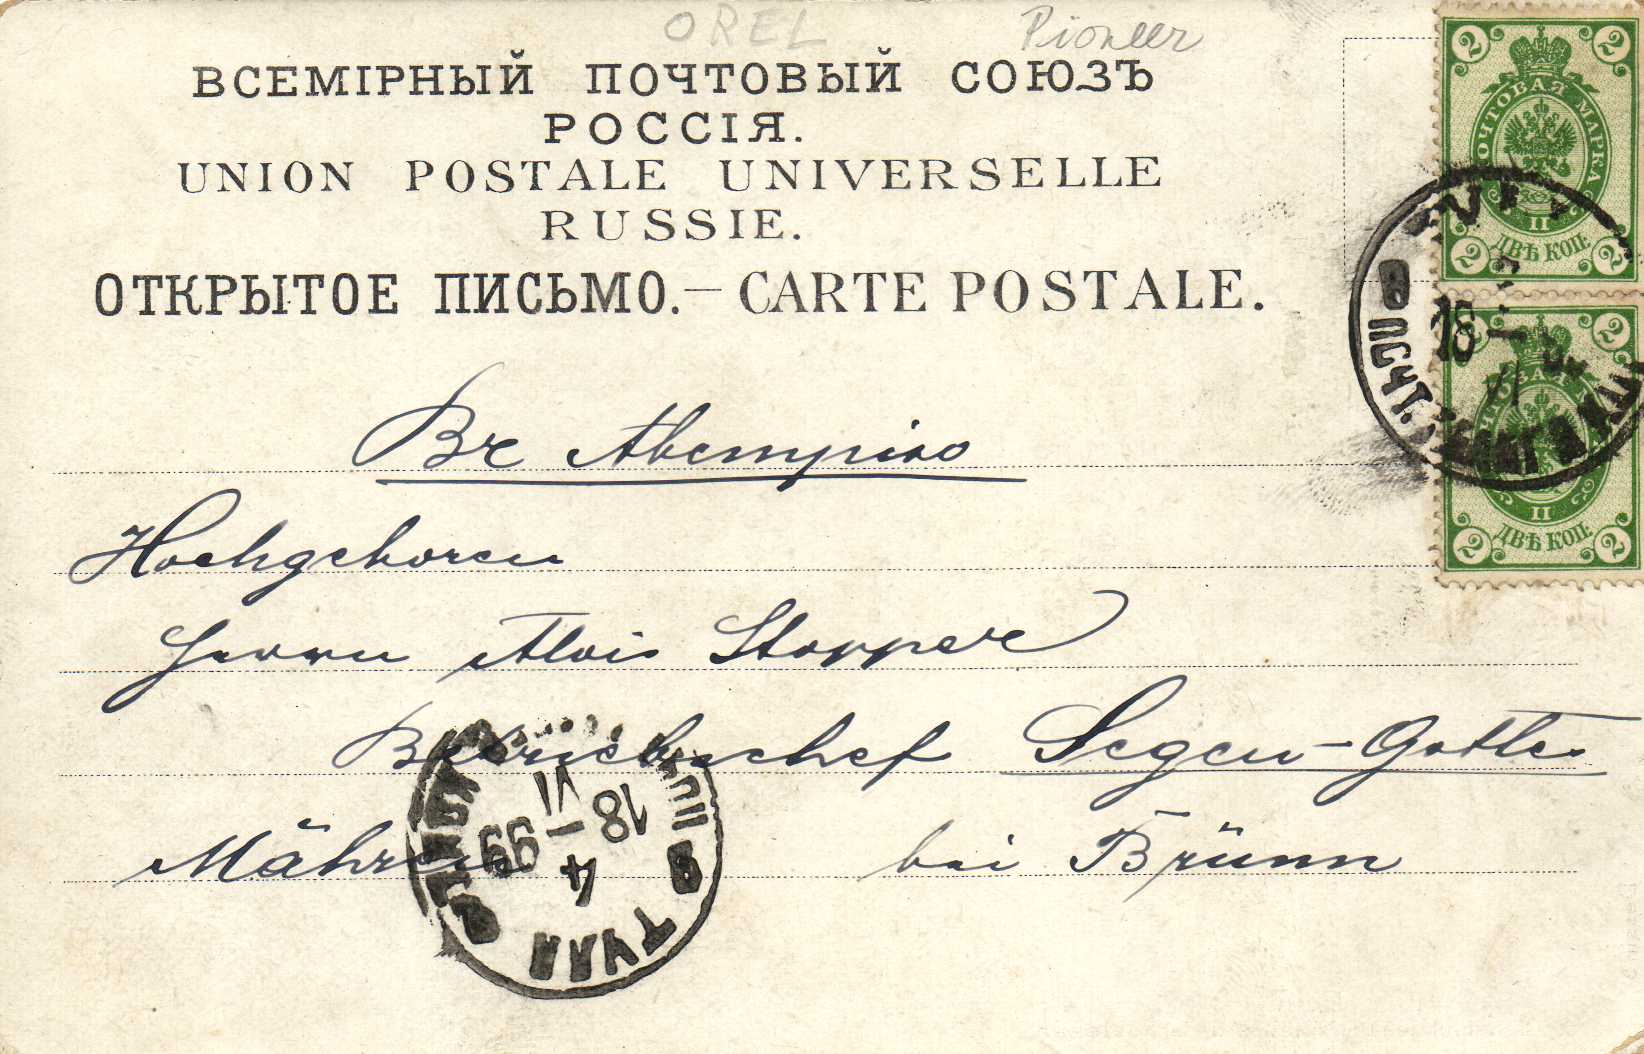 OREL
Pioneer
ВСЕМІРНЫЙ ПОЧТОВЫЙ СОЮЗЪ
РОССІЯ.
UNION POSTALE UNIVERSELLE
RUSSIE.
ОТКРЫТОЕ ПИСЬМО.— CARTE POSTALE.
2 2
ПОЧТОВАЯ МАРКА
II
ДВѢ КОП.
2 2
18
VI
2
ПОЧТОВАЯ
II
ДВѢ КОП.
2 2
Въ Австрію
Hochgeboren
Herrn Alois Stopper
Betriebschef Segen-Gottes
Mähren bei Brünn
18 VI 99
4
ТУЛА